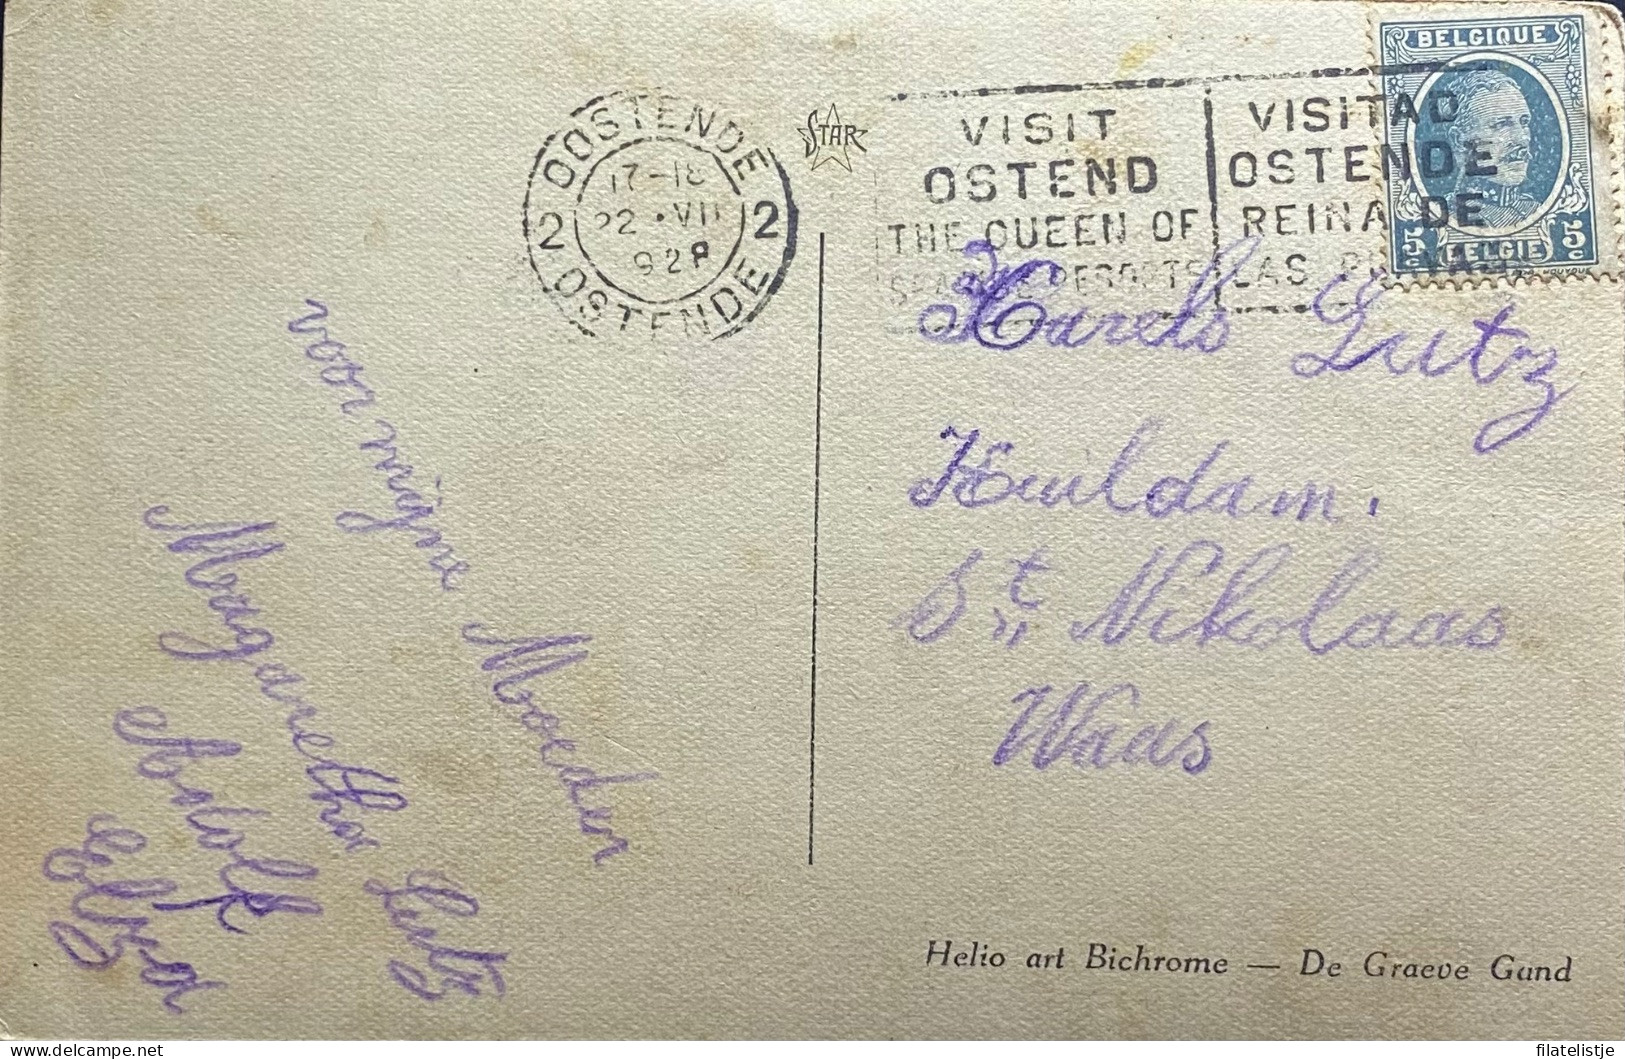 BELGIQUE
5c 5c
BELGIE
OOSTENDE
17-18
22 · VII
928
2 2
OSTENDE
STAR
VISIT
OSTEND
THE QUEEN OF
VISITAD
OSTENDE
REINA DE
LAS
Karels Lutz
Kuildam.
St Nikolaas
Waas
voor mijne Moeder
Margaretha Lutz
Adolf
Helio art Bichrome — De Graeve Gand
© filatelistje delcampe.net